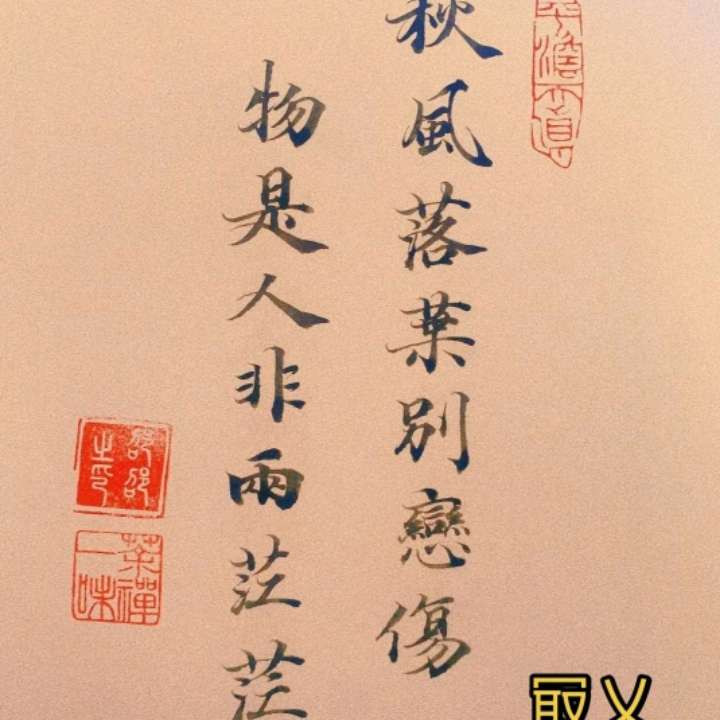 秋風落葉別戀傷
物是人非兩茫茫
茶禪一味